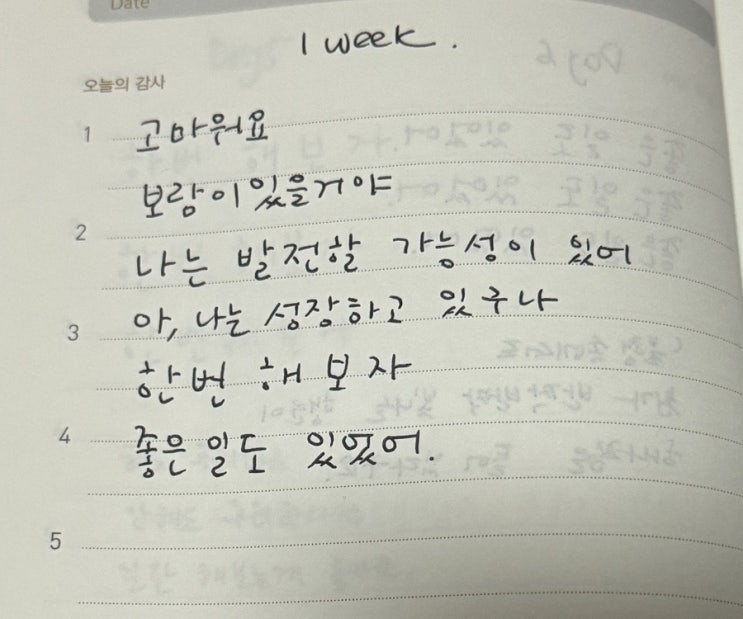 Date
1 week.
오늘의 감사
1 고마워요
보람이있을거야
2
나는 발전할 가능성이 있어
아, 나는 성장하고 있구나
3
한번 해 보자
4 좋은 일도 있었어.
5